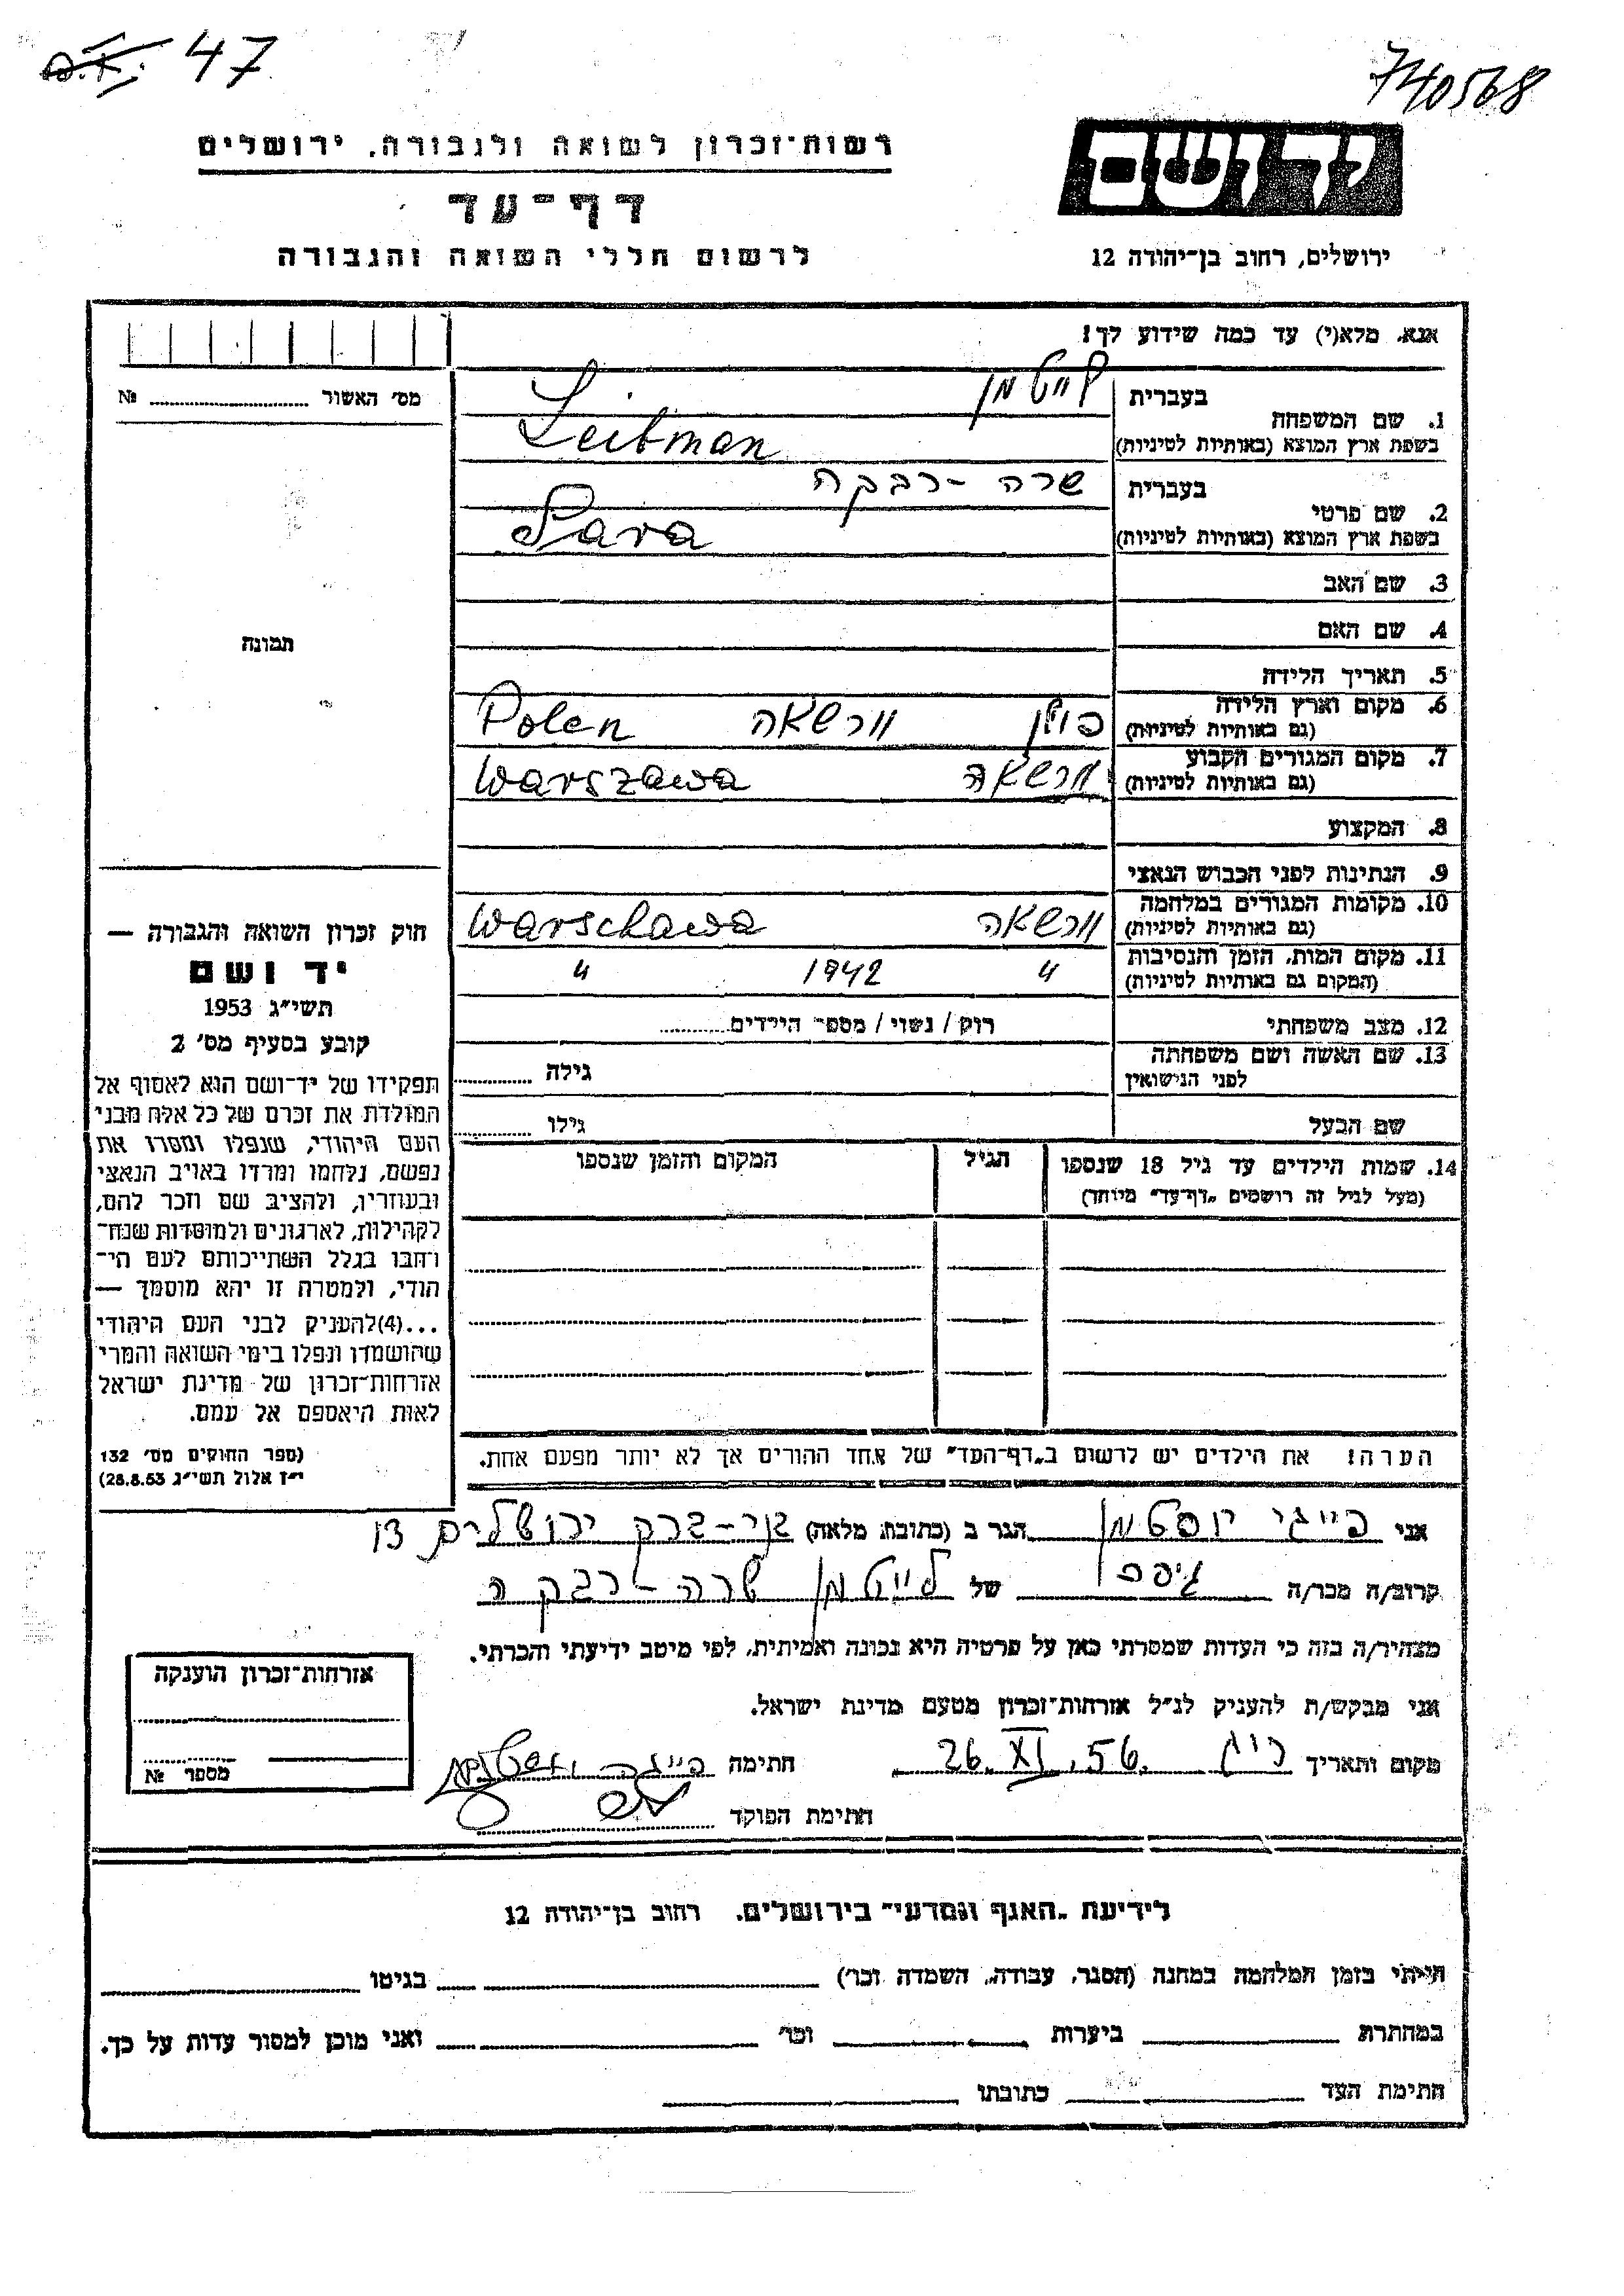 47
740568
יד ושם
רשות־זכרון לשואה ולגבורה, ירושלים
דף־עד
לרשום חללי השואה והגבורה
ירושלים, רחוב בן־יהודה 12
אנא, מלא(י) עד כמה שידוע לך!
מס׳ האשור № ........
1. שם המשפחה
בעברית לייטמן
בשפת ארץ המוצא (באותיות לטיניות) Leitman
2. שם פרטי
בעברית שרה - רבקה
בשפת ארץ המוצא (באותיות לטיניות) Sara
3. שם האב
4. שם האם
5. תאריך הלידה
6. מקום וארץ הלידה פולין וורשאה Polen
(גם באותיות לטיניות)
7. מקום המגורים הקבוע וורשאה Warszawa
(גם באותיות לטיניות)
8. המקצוע
9. הנתינות לפני הכבוש הנאצי
10. מקומות המגורים במלחמה וורשאה Warschawa
(גם באותיות לטיניות)
11. מקום המות, הזמן והנסיבות " 1942 "
(המקום גם באותיות לטיניות)
12. מצב משפחתי רוק / נשוי / מספר הילדים ........
13. שם האשה ושם משפחתה
לפני הנישואין גילה ........
שם הבעל גילו ........
14. שמות הילדים עד גיל 18 שנספו הגיל המקום והזמן שנספו
(מעל לגיל זה רושמים „דף־עד" מיוחד)
הערה! את הילדים יש לרשום ב„דף־העד" של אחד ההורים אך לא יותר מפעם אחת.
תמונה
חוק זכרון השואה והגבורה —
יד ושם
תשי״ג 1953
קובע בסעיף מס׳ 2
תפקידו של יד־ושם הוא לאסוף אל
המולדת את זכרם של כל אלה מבני
העם היהודי, שנפלו ומסרו את
נפשם, נלחמו ומרדו באויב הנאצי
ובעוזריו, ולהציב שם וזכר להם,
לקהילות, לארגונים ולמוסדות שנח־
רחבו בגלל השתייכותם לעם הי־
הודי, ולמטרה זו יהא מוסמך —
...(4)להעניק לבני העם היהודי
שהושמדו ונפלו בימי השואה והמרי
אזרחות־זכרון של מדינת ישראל
לאות היאספם אל עמם.
(ספר החוקים מס׳ 132
י״ז אלול תשי״ג 28.8.53)
אני פייגי יוסטמן הגר ב (כתובת מלאה) בני-ברק ירושלים 13
קרוב/ה מכר/ה גיסה של לייטמן שרה - רבקה
מצהיר/ה בזה כי העדות שמסרתי כאן על פרטיה היא נכונה ואמיתית, לפי מיטב ידיעתי והכרתי.
אני מבקש/ת להעניק לנ״ל אזרחות־זכרון מטעם מדינת ישראל.
מקום ותאריך 26. XI. 56. חתימה פייגה יוסטמן
חתימת הפוקד
אזרחות־זכרון הוענקה
מספר №
לידיעת „האגף המדעי" בירושלים, רחוב בן־יהודה 12
הייתי בזמן המלחמה במחנה (הסגר, עבודה, השמדה וכר׳) בגיטו
במחתרת ביערות וכר׳ ואני מוכן למסור עדות על כך.
חתימת העד כתובתו